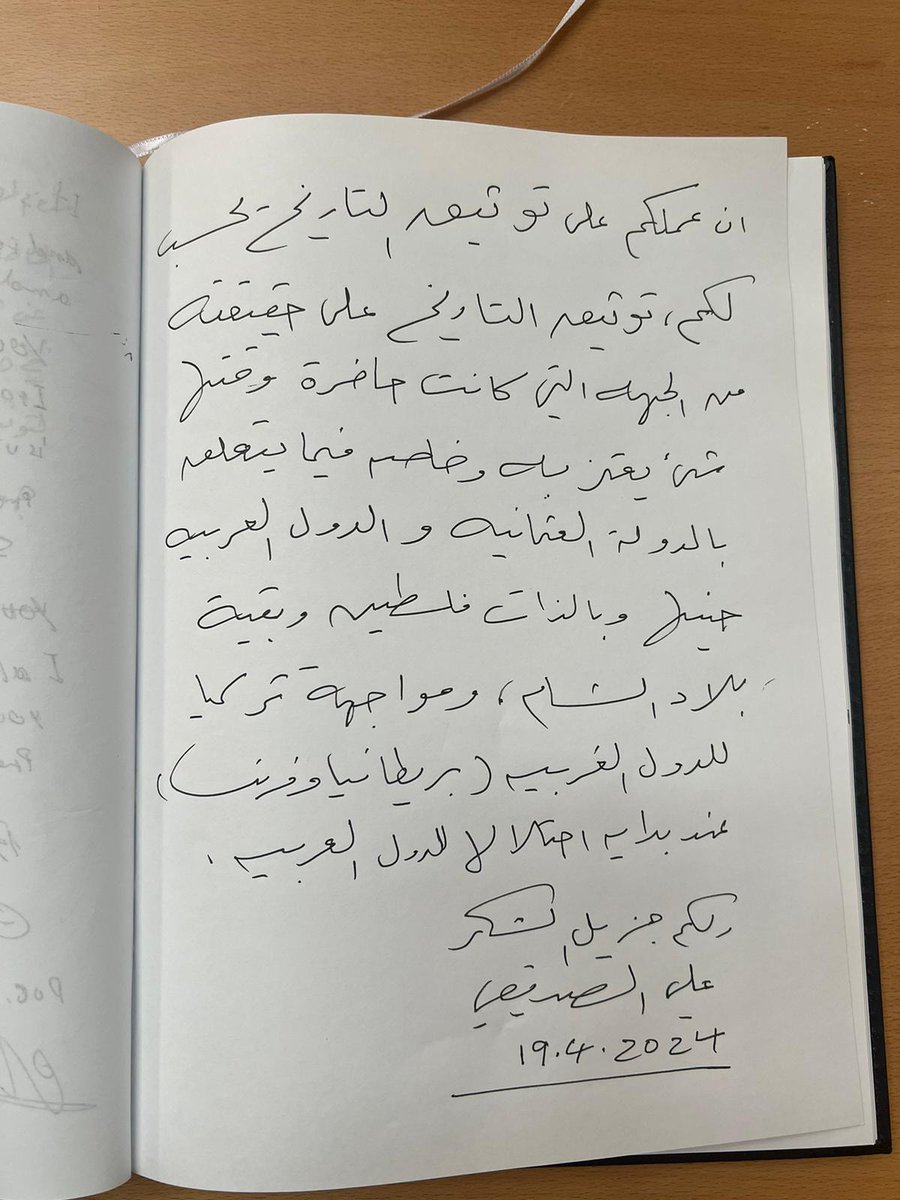 ان عملكم على توثيق التاريخ يحسب
لكم، توثيق التاريخ على حقيقته
من الجهه التي كانت حاضرة وقتها
شئ يعتز به وخاصه فيما يتعلق
بالدولة العثمانيه و الدول العربيه
حينها وبالذات فلسطين وبقية
بلاد الشام، ومواجهة تركيا
للدول الغربيه (بريطانيا وفرنسا)،
عند بدايه احتلالا للدول العربيه.
ولكم جزيل الشكر
علي الصديقي
19.4.2024